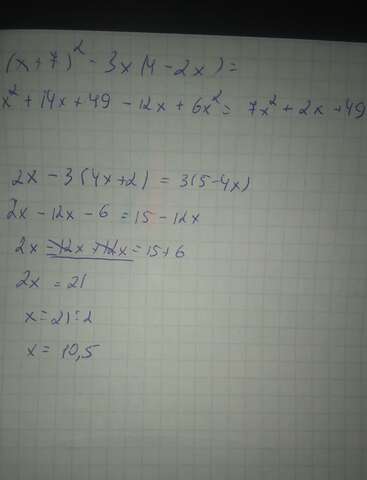 (x+7)² - 3x(4-2x) =
x² + 14x + 49 - 12x + 6x² = 7x² + 2x + 49
2x - 3(4x+2) = 3(5-4x)
2x - 12x - 6 = 15 - 12x
2x - 12x + 12x = 15 + 6
2x = 21
x = 21 : 2
x = 10,5